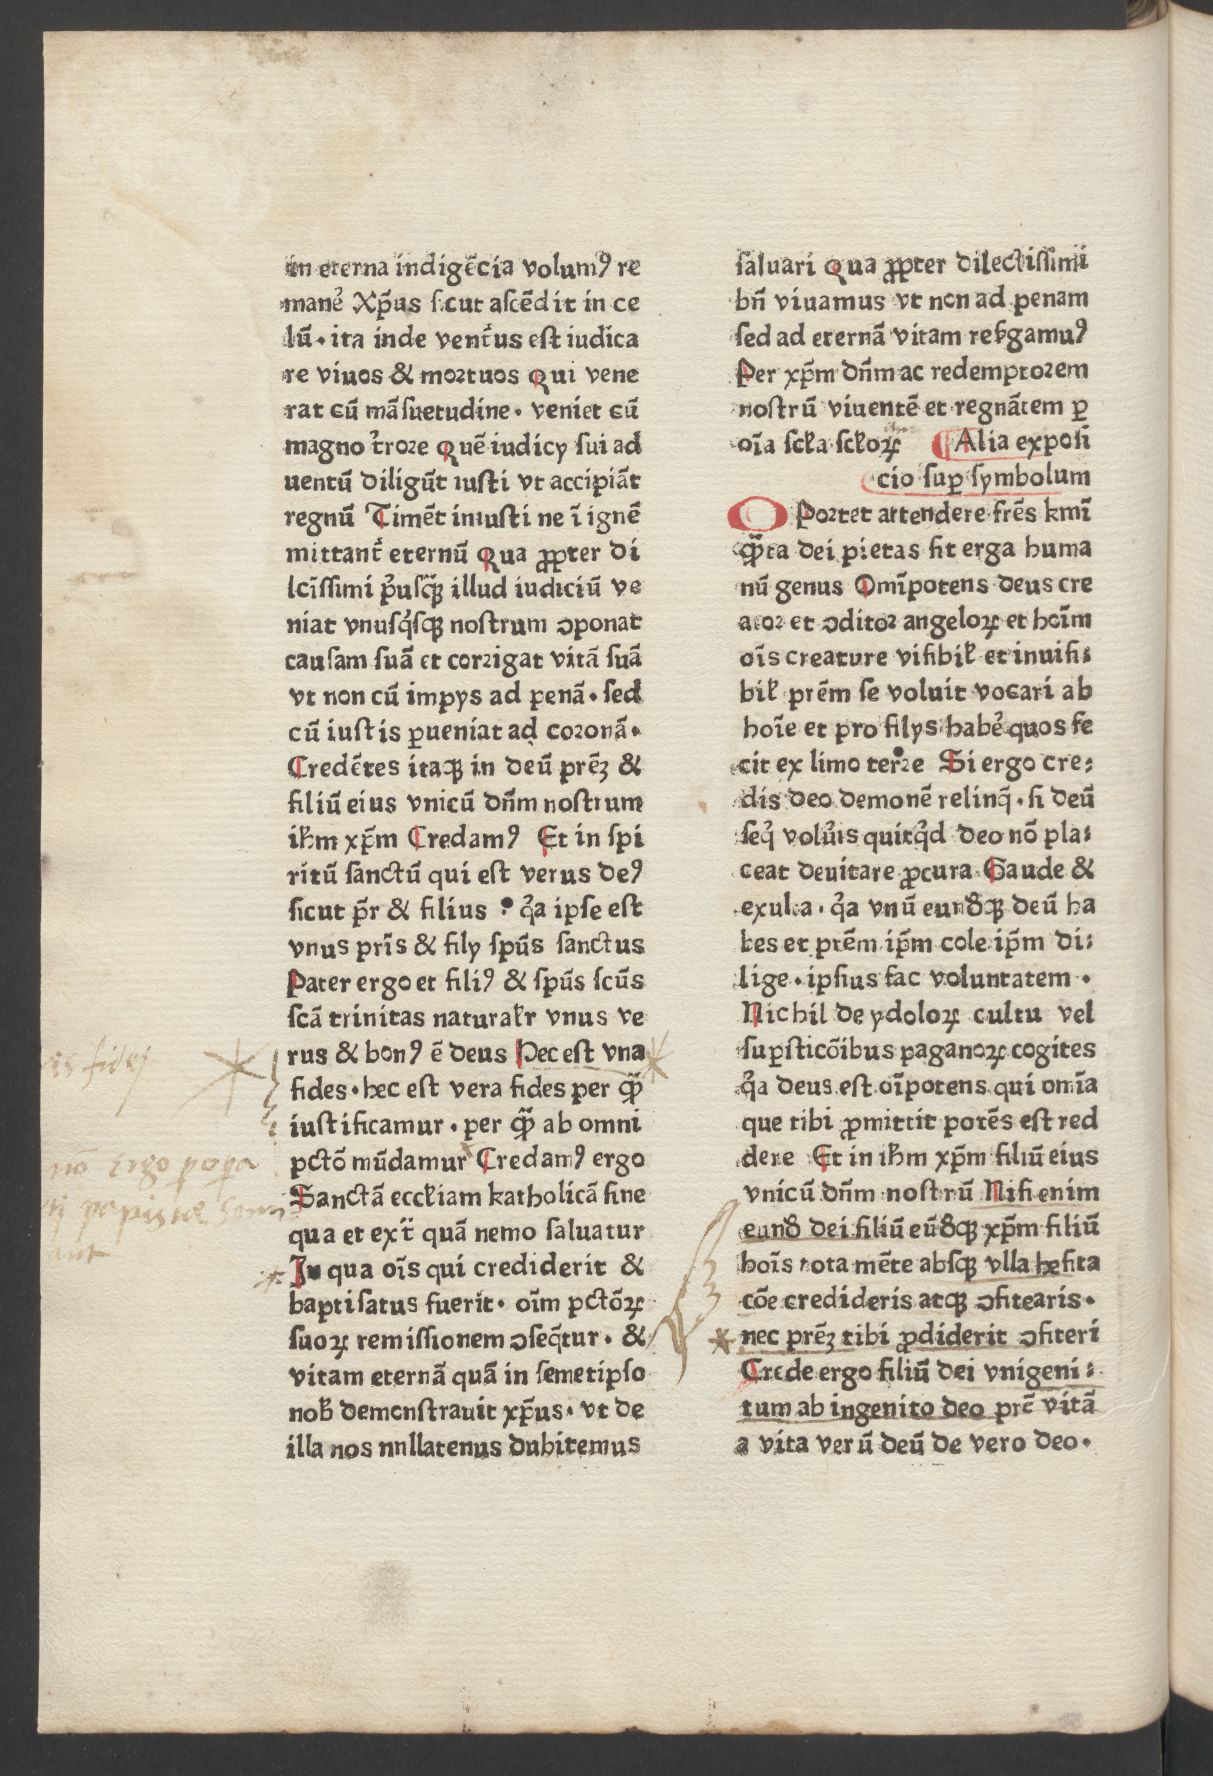 in eterna indigēcia volumꝰ re
mane᷑ Xp̄us sicut ascēdit in ce
lū · ita inde vent᷑us est iudica
re viuos & mortuos Qui vene
rat cū māsuetudine · veniet cū
magno t᷑rore Quē iudicÿ sui ad
uentū diligūt iusti vt accipiāt
regnū Timēt iniusti ne ī ignē
mittant᷑ eternū Qua ꝓpter di
lcīssimi p᷑usq̄ꝫ illud iudiciū ve
niat vnusq᷑sqꝫ nostrum ↄponat
causam suā et corrigat vitā suā
vt non cū impÿs ad penā · sed
cū iustis ꝑueniat ad coronā ·
Credētes itaqꝫ in deū prēꝫ &
filiū eius vnicū dn̄m nostrum
ihm̄ xp̄m Credamꝰ Et in spi
ritū sanctū qui est verus deꝰ
sicut pr̄ & filius : q᷑a ipse est
vnus prīs & filÿ spūs sanctus
Pater ergo et filiꝰ & spūs scūs
scā trinitas naturalr̄ vnus ve
rus & bonꝰ ē deus Hec est vna
fides · hec est vera fides per qm̄
iustificamur · per qm̄ ab omni
pctō mūdamur Credamꝰ ergo
Sanctā eccłiam katholicā sine
qua et ext᷑ quā nemo saluatur
In qua oīs qui crediderit &
baptisatus fuerit · oīm pctōꝝ
suoꝝ remissionem ↄseq̄tur · &
vitam eternā quā in semetipso
nob̄ demonstrauit xp̄us · vt de
illa nos nnllatenus dubitemus
saluari Qua ꝓpter dilectissimi
bn̄ viuamus vt non ad penam
sed ad eternā vitam resꝰgamuꝰ
Per xp̄m dn̄m ac redemptorem
nostrū viuentē et regnātem ꝑ
oīa scła scłoꝝ Alia exposi
cio suꝑ symbolum
OPortet attendere frēs kmī
q̄ta dei pietas sit erga huma
nū genus Omīpotens deus cre
ator et ↄditor angeloꝝ et hoīm
oīs creature visibil̄ et inuisi⸗
bil̄ prēm se voluit vocari ab
hoīe et pro filÿs habe᷑ quos fe
cit ex limo terre Si ergo cre⸗
dis deo demonē relinq̄ · si deū
seq᷑ volu᷑is quitq᷑d deo nō pla⸗
ceat deuitare ꝓcura Gaude &
exulta · q᷑a vnū eundꝫqꝫ deū ha
bes et prēm ip̄m cole ip̄m di⸗
lige · ipsius fac voluntatem ·
Nichil de ydoloꝝ cultu vel
suꝑsticōibus paganoꝝ cogites
q᷑a deus est oīpotens qui omīa
que tibi ꝓmittit potēs est red
dere Et in ihm̄ xp̄m filiū eius
vnicū dn̄m nostrū Nisi enim
eund̄ dei filiū eūdꝫqꝫ xp̄m filiū
hoīs tota mēte absqꝫ vlla hesita
cōe credideris atqꝫ ↄfitearis ·
nec prēꝫ tibi ꝓdiderit ↄfiteri
Crede ergo filiū dei vnigeni⸗
tum ab ingenito deo prē vitā
a vita verū deū de vero deo ·
is fidej
nō ergo papa
papisticę